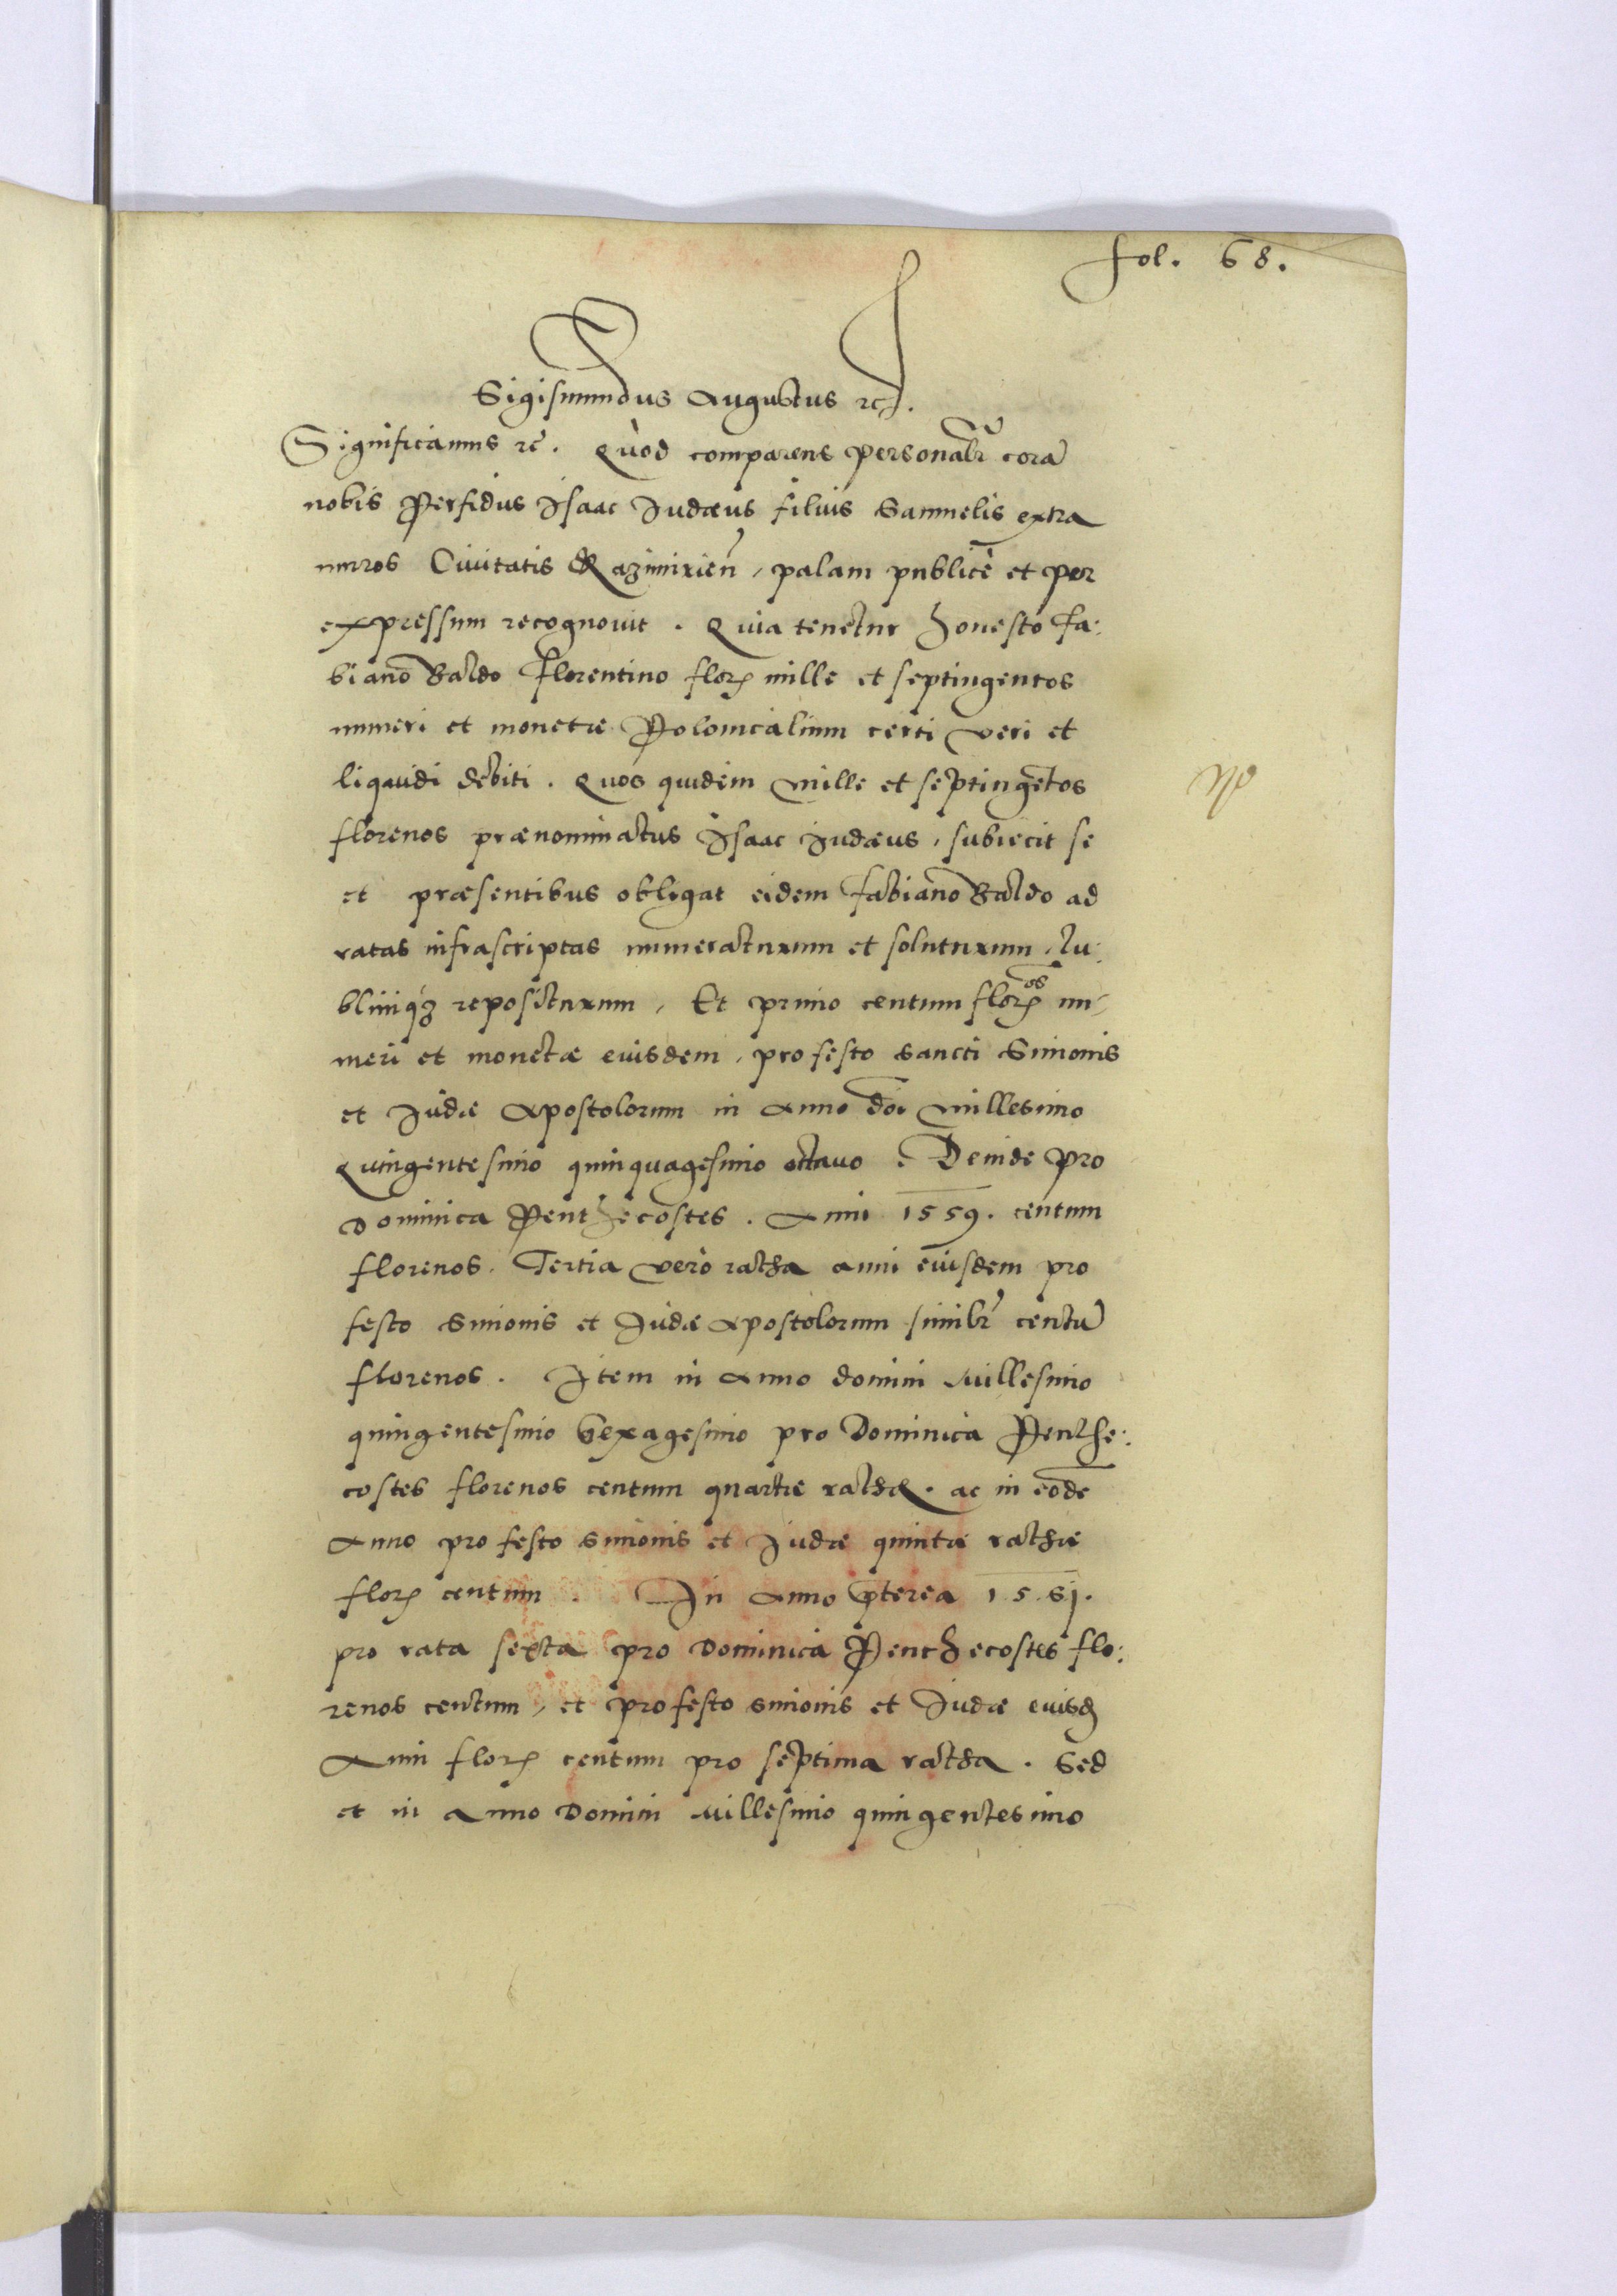 fol. 68.
Sigismundus Augustus etc.
Significamus etc. Quod comparens personalr̃ corã
nobis Perfidus Isaac Iudæus filius Samuelis extra
muros Ciuitatis Kazimirien̄, palam publicè et per
expressum recognouit. Quia tenetur honesto Fa:
biano Baldo Florentino flor̃ mille et septingentos
numeri et monetæ Polonicalium certi veri et
liquidi debiti. Quos quidem mille et septingẽtos
florenos prænominatus Isaac Iudæus, subiecit se
et præsentibus obligat eidem Fabiano Baldo ad
ratas infrascriptas numeraturum et soluturum, Lu:
bliniq́ʒ repositurum, Et primo centum flor̃os nu-
meri et monetæ eiusdem, pro festo sancti Simonis
et Iudæ Apostolorum in Anno dñi Millesimo
Quingentesimo quinquagesimo octauo. Deinde pro
Dominica Penthecostes. Anni 1559. centum
florenos. Tertia verò ratha anni eiusdem pro
festo Simonis et Iudæ Apostolorum similr̃ centũ
florenos. Item in Anno domini Millesimo
quingentesimo Sexagesimo pro Dominica Penthe:
costes florenos centum quartæ rathæ. ac in eodẽ
Anno pro festo Simonis et Iudæ quintæ rathæ
flor̃ centum. In Anno p̄terea 1561.
pro rata sexta pro Dominica Penthecostes flo:
renos centum, et pro festo Simonis et Iudæ eiusd̃
Anni flor̃ centum pro septima ratha. Sed
et in Anno Domini Millesimo quingentesimo